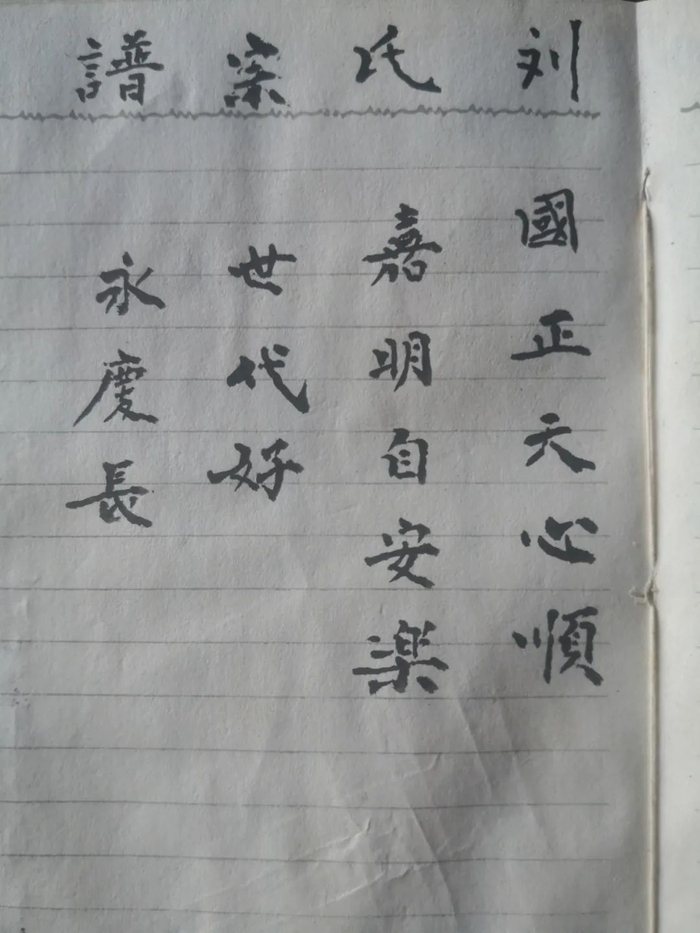 刘氏宗譜
國正天心順
嘉明自安楽
世代好
永慶長